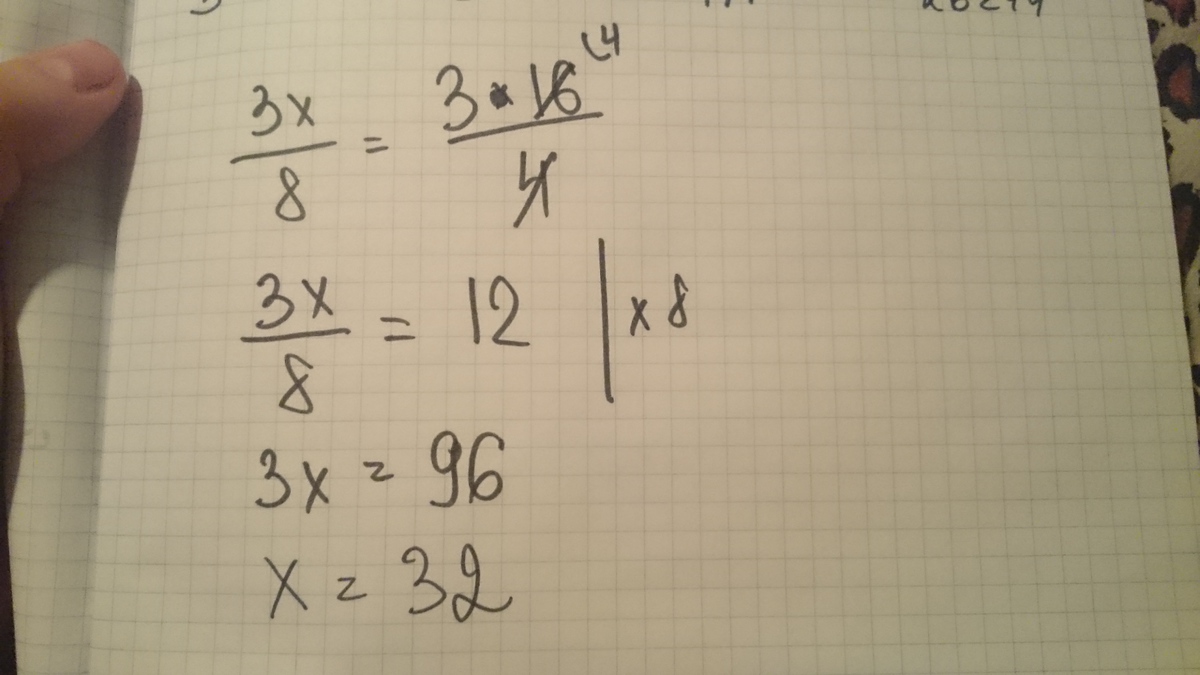 3x/8 = 3 · 16/4 4
3x/8 = 12 | x 8
3x = 96
x = 32